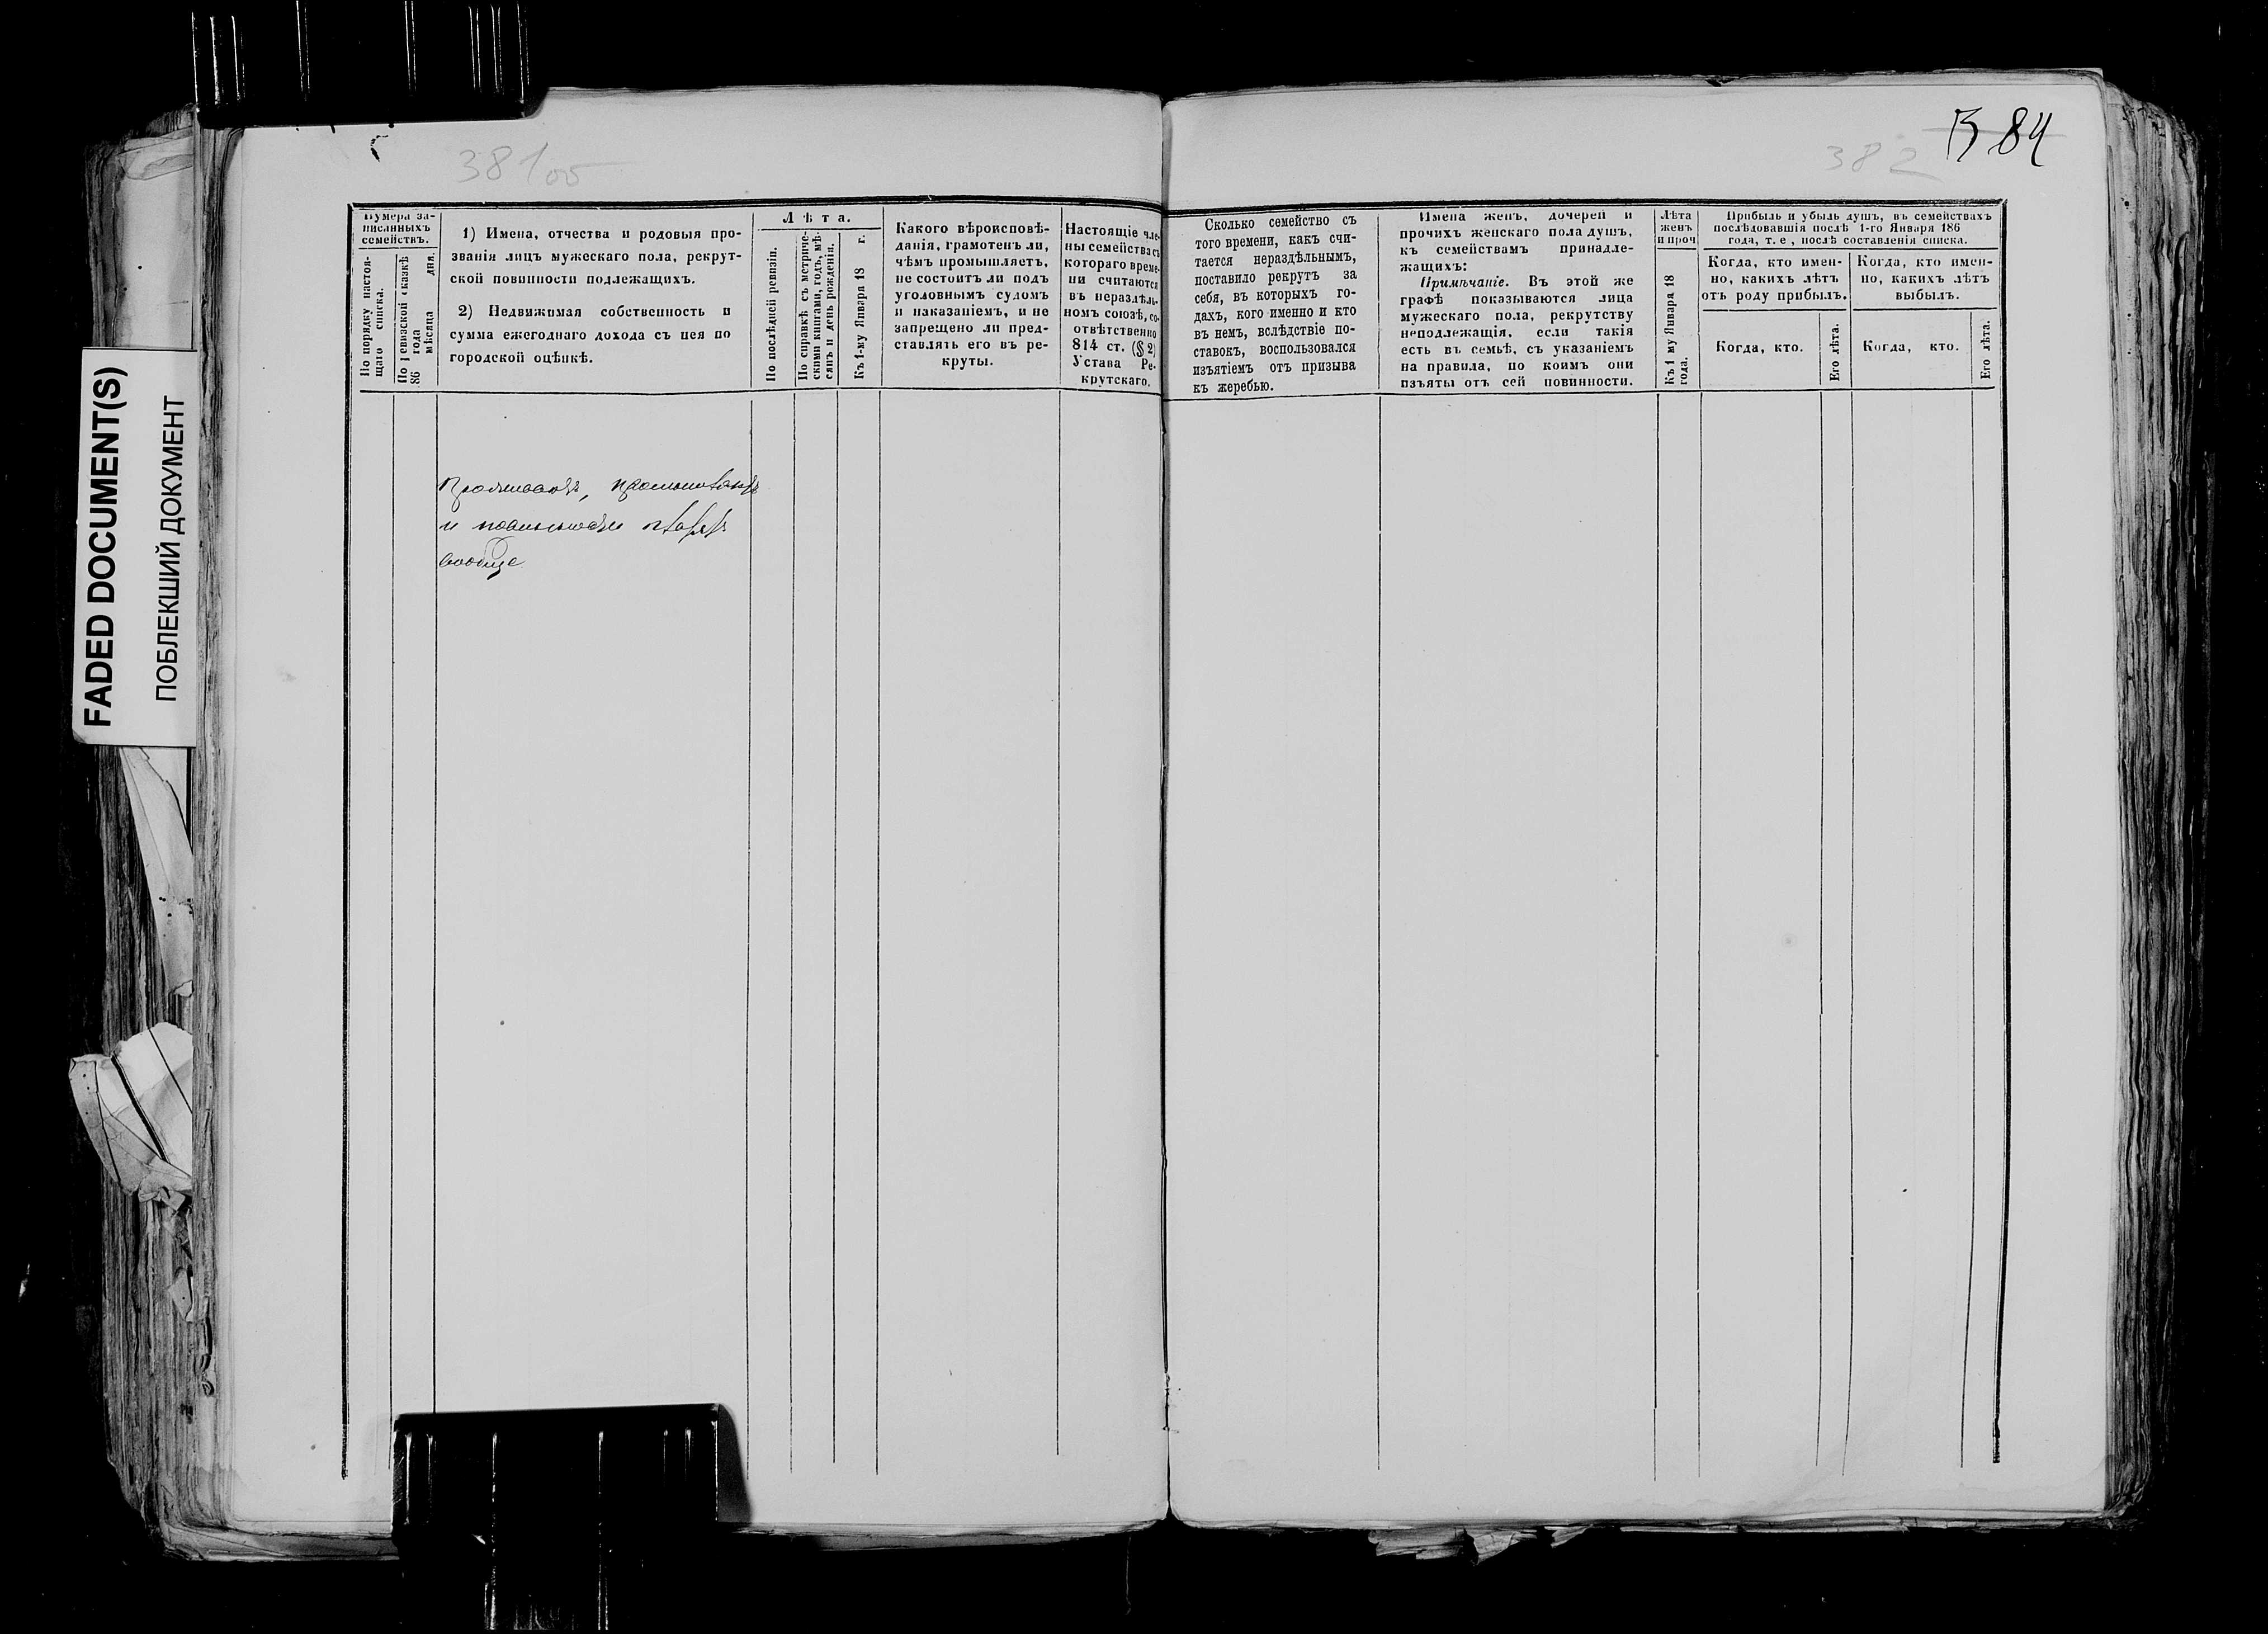 FADED DOCUMENT(S)
ПОБЛЕКШИЙ ДОКУМЕНТ
381об
382
384
Нумера за-
писанныхъ
семействъ.
По порядку настоя-
щаго списка.
По ревизской сказкѣ
86 года
мѣсяца дня.
1) Имена, отчества и родовыя про-
званія лицъ мужескаго пола, рекрут-
ской повинности подлежащихъ.
2) Недвижимая собственность и
сумма ежегоднаго дохода съ нея по
городской оцѣнкѣ.
Лѣта.
По послѣдней ревизіи.
По справкѣ съ метриче-
скими книгами, годъ, мѣ-
сяцъ и день рожденія.
Къ 1-му Января 18 г.
Какого вѣроисповѣ-
данія, грамотенъ ли,
чѣмъ промышляетъ,
не состоитъ ли подъ
уголовнымъ судомъ
и наказаніемъ, и не
запрещено ли пред-
ставлять его въ ре-
круты.
Настоящіе чле-
ны семейства съ
котораго време-
ни считаются
въ нераздѣль-
номъ союзѣ, со-
отвѣтственно
814 ст. (§ 2)
Устава Ре-
крутскаго.
Сколько семейство съ
того времени, какъ счи-
тается нераздѣльнымъ,
поставило рекрутъ за
себя, въ которыхъ го-
дахъ, кого именно и кто
въ немъ, вслѣдствіе по-
ставокъ, воспользовался
изъятіемъ отъ призыва
къ жеребью.
Имена женъ, дочерей и
прочихъ женскаго пола душъ,
къ семействамъ принадле-
жащихъ:
Примѣчаніе. Въ этой же
графѣ показываются лица
мужескаго пола, рекрутству
неподлежащія, если такія
есть въ семьѣ, съ указаніемъ
на правила, по коимъ они
изъяты отъ сей повинности.
Лѣта
женъ
и проч
Къ 1 му Января 18
года.
Прибыль и убыль душъ, въ семействахъ
послѣдовавшія послѣ 1-го Января 186
года, т. е, послѣ составленія списка.
Когда, кто имен-
но, какихъ лѣтъ
отъ роду прибылъ.
Когда, кто.
Его лѣта.
Когда, кто имен-
но, какихъ лѣтъ
выбылъ.
Когда, кто.
Его лѣта.
и
вообще